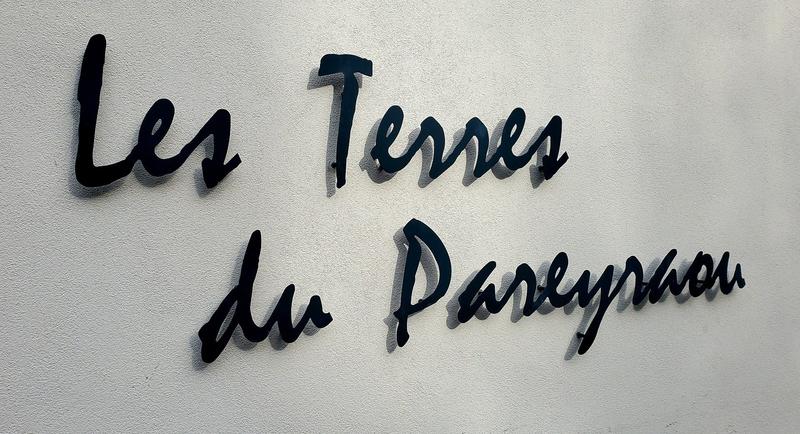 Les Terres
du Pareyraou